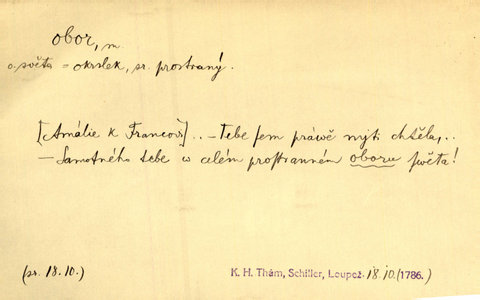 obor, m.
o. světa = okrslek, sr. prostraný.
[Amálie k Francovi] .. – Tebe sem práwě mýti chtěla, ..
– Samotného tebe w celém prostranném oboru swěta!
(sr. 18.10.) K. H. Thám, Schiller, Loupež. 18.10. (1786.)